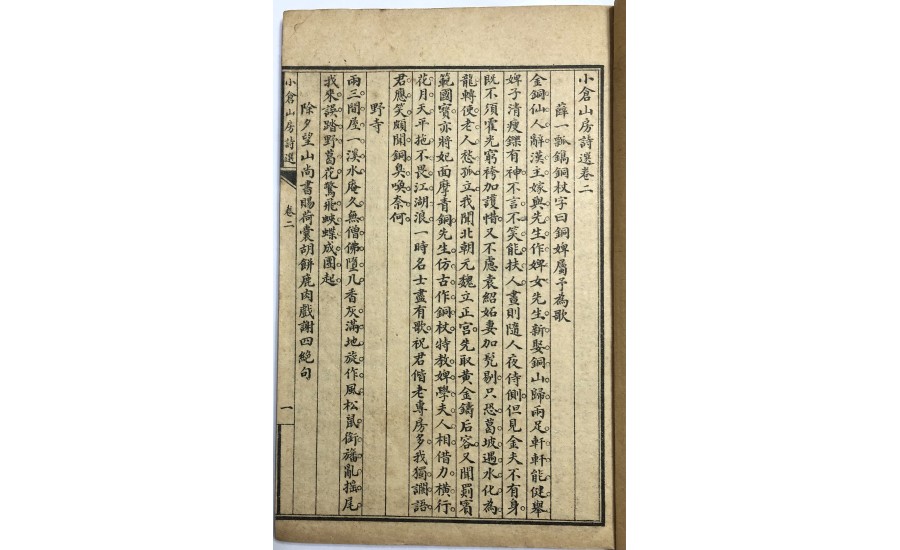 小倉山房詩選卷二
薛一瓢鑄銅杖字曰銅婢屬予為歌
金銅仙人辭漢主嫁與先生作婢女先生新娶銅山歸兩足軒軒能健舉
婢子清瘦鏷有神不言不笑能扶人晝則隨人夜侍側但見金夫不有身
既不須霍光窮袴加護惜又不慮袁紹妬妻加髡剔只恐葛坡遇水化為
龍轉使老人愁孤立我聞北朝元魏立正宮先取黃金鑄后容又聞罽賓
範國寶亦將妃面摩青銅先生仿古作銅杖特教婢學夫人相借力橫行
花月天平拖不畏江湖浪一時名士盡有歌祝君偕老專房多我獨讕語
君應笑頗聞銅臭喚奈何
野寺
兩三間屋一溪水庵久無僧佛墮几香灰滿地旋作風松鼠銜旛亂搖尾
我來誤踏野葛花驚飛蛺蝶成團起
除夕望山尚書賜荷囊胡餅鹿肉戲謝四絕句
小倉山房詩選
卷二
一